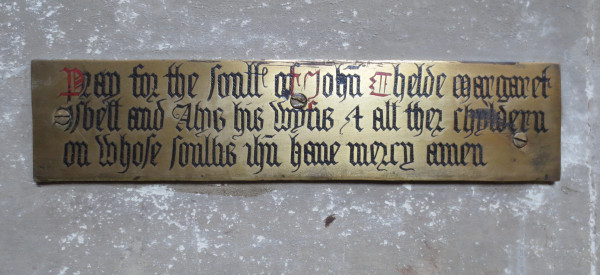 Pray for the soull' of John Chelde margaret
Isbell and Alys his wyfis & all ther chyldern
on whose soullis ihu haue mercy amen